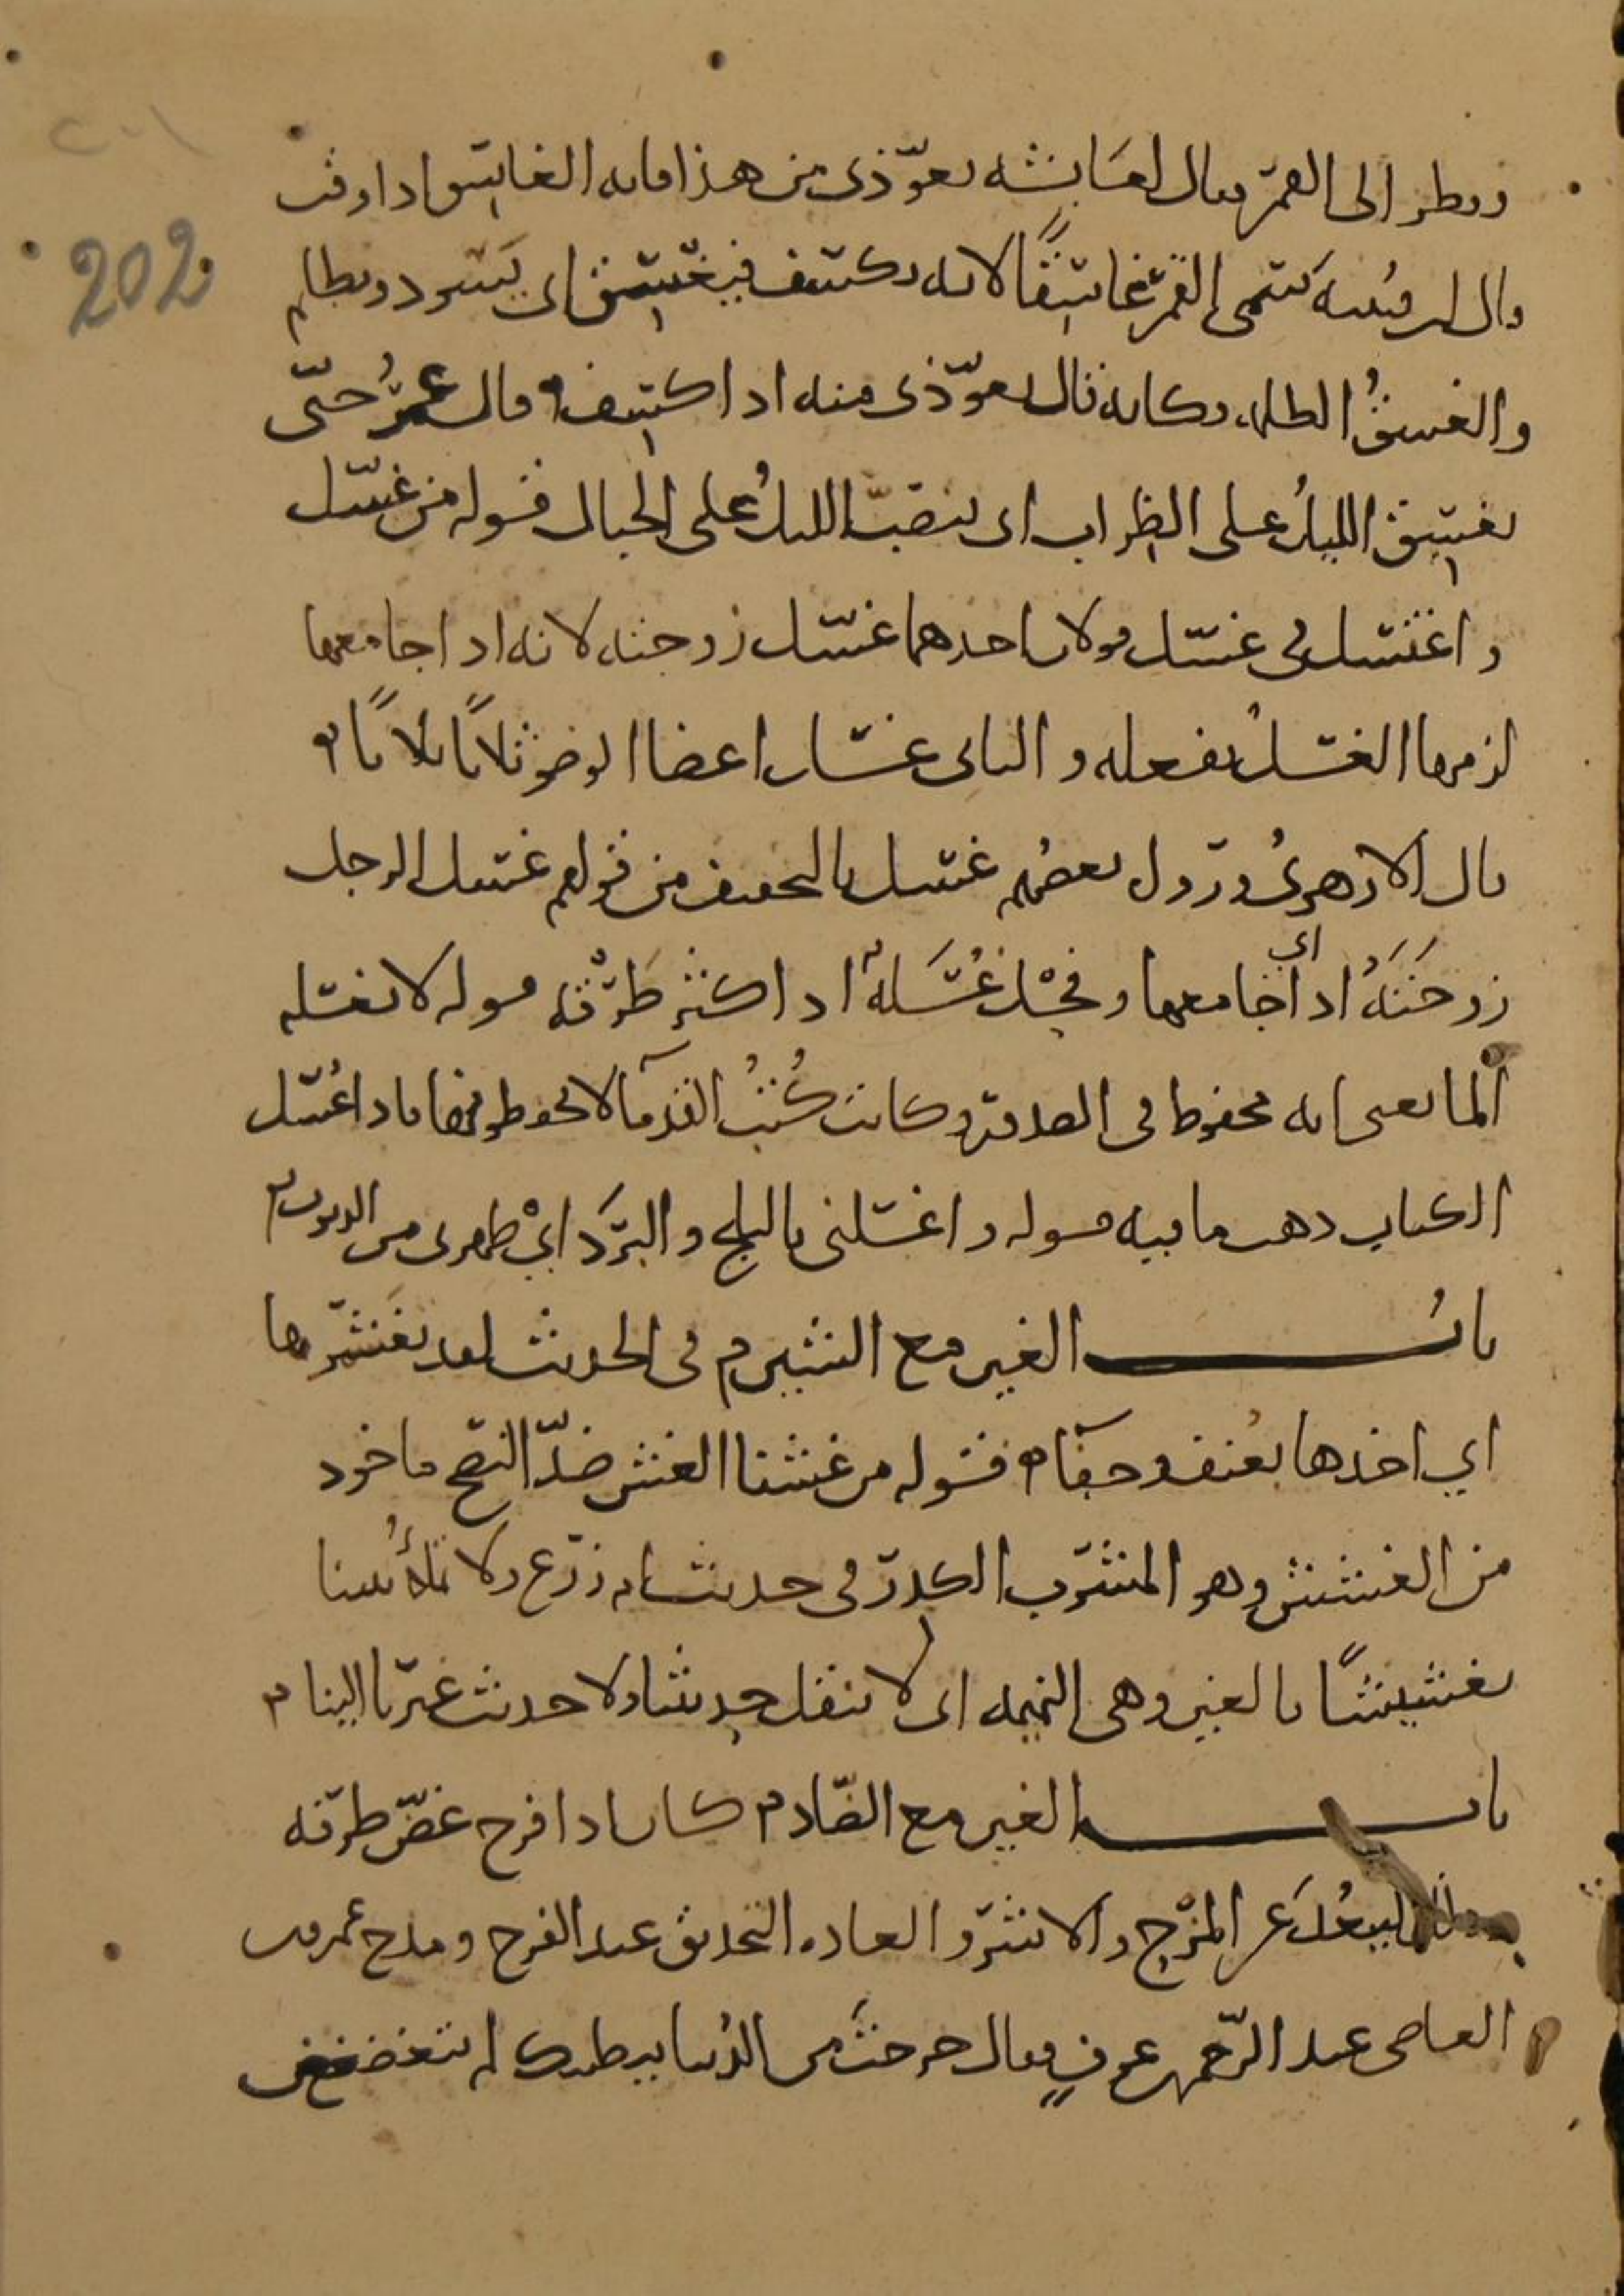 ٢٠١
202
ونظر إلى القمر فقال لعائشة تعوّذي من هذا فإنه الغاسق إذا وقب
قال ابن قتيبة يسمى القمر غاسقًا لأنه يكسف فيغسق أي يسود ويظلم
والغسقُ الظلمة وكأنه قال تعوّذي منه إذا كسف وقال عمرُ حتّى
يغسق الليلُ على الظراب أي ينصبّ الليلُ على الجبال قوله من غسّل
واغتسل في غسّل قولان أحدهما غسّل زوجته لأنه إذا جامعها
لزمها الغسلُ بفعله والثاني غسل أعضا الوضو ثلاثًا ثلاثًا
قال الأزهريُّ ورَوَاه بعضُهم غسل بالتخفيف من قولهم غسل الرجل
زوجتَهُ إذا أي جامعها وفحْلٌ غُسَلةٌ إذا أكثر طَرْقه قوله لا يغسله
الْما يعني أنه محفوظ في الصدور وكانت كُتُبُ القدمآ لا تحفظونها فإذا غُسل
الكتاب ذهب ما فيه قوله واغسلني بالثلج والبَرَد أيْ طهرني من الذنوب
بابُ الغين مع الشين في الحديث لقد تغشمرها
أي أخذها بعُنف وجفآء قوله من غشنا الغش ضدّ النصح ماخوذ
من الغشش وهو المشرب الكدر في حديث أم زرع ولا تملأُ بيتنا
تغشيشًا بالغين وهي النميمه أي لا تنقل حديثنا ولا حديث غيرنا إلينا
باب الغين مع الضّاد كان إذا فرح غضّ طرفه
ليبعُدَ عن المرَح والأشر والعاده التحديق عند الفرح ومدح عمرو بن
العاصي عبد الرّحمن بن عوفٍ فقال خرجتَ من الدُنيا ببطنتك لم تتغضغض